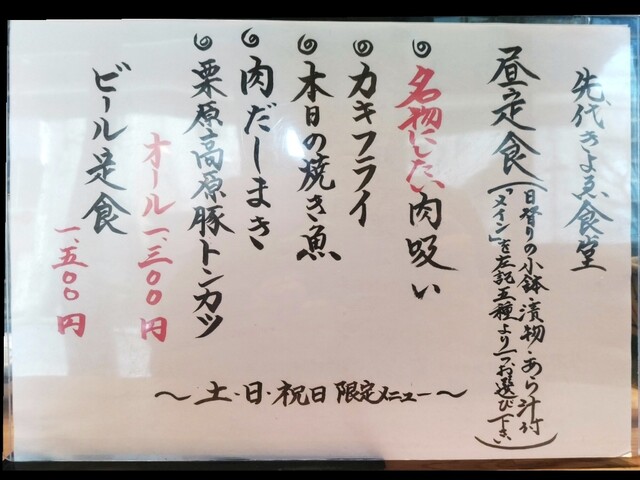 先代きよゑ食堂
昼定食
(日替りの小鉢・漬物・あら汁付
「メイン」を左記五種より一つお選び下さい)
名物にしたい肉吸い
カキフライ
本日の焼き魚
肉だしまき
栗原高原豚トンカツ
オール一、三〇〇円
ビール定食
一、五〇〇円
〜土・日・祝日限定メニュー〜